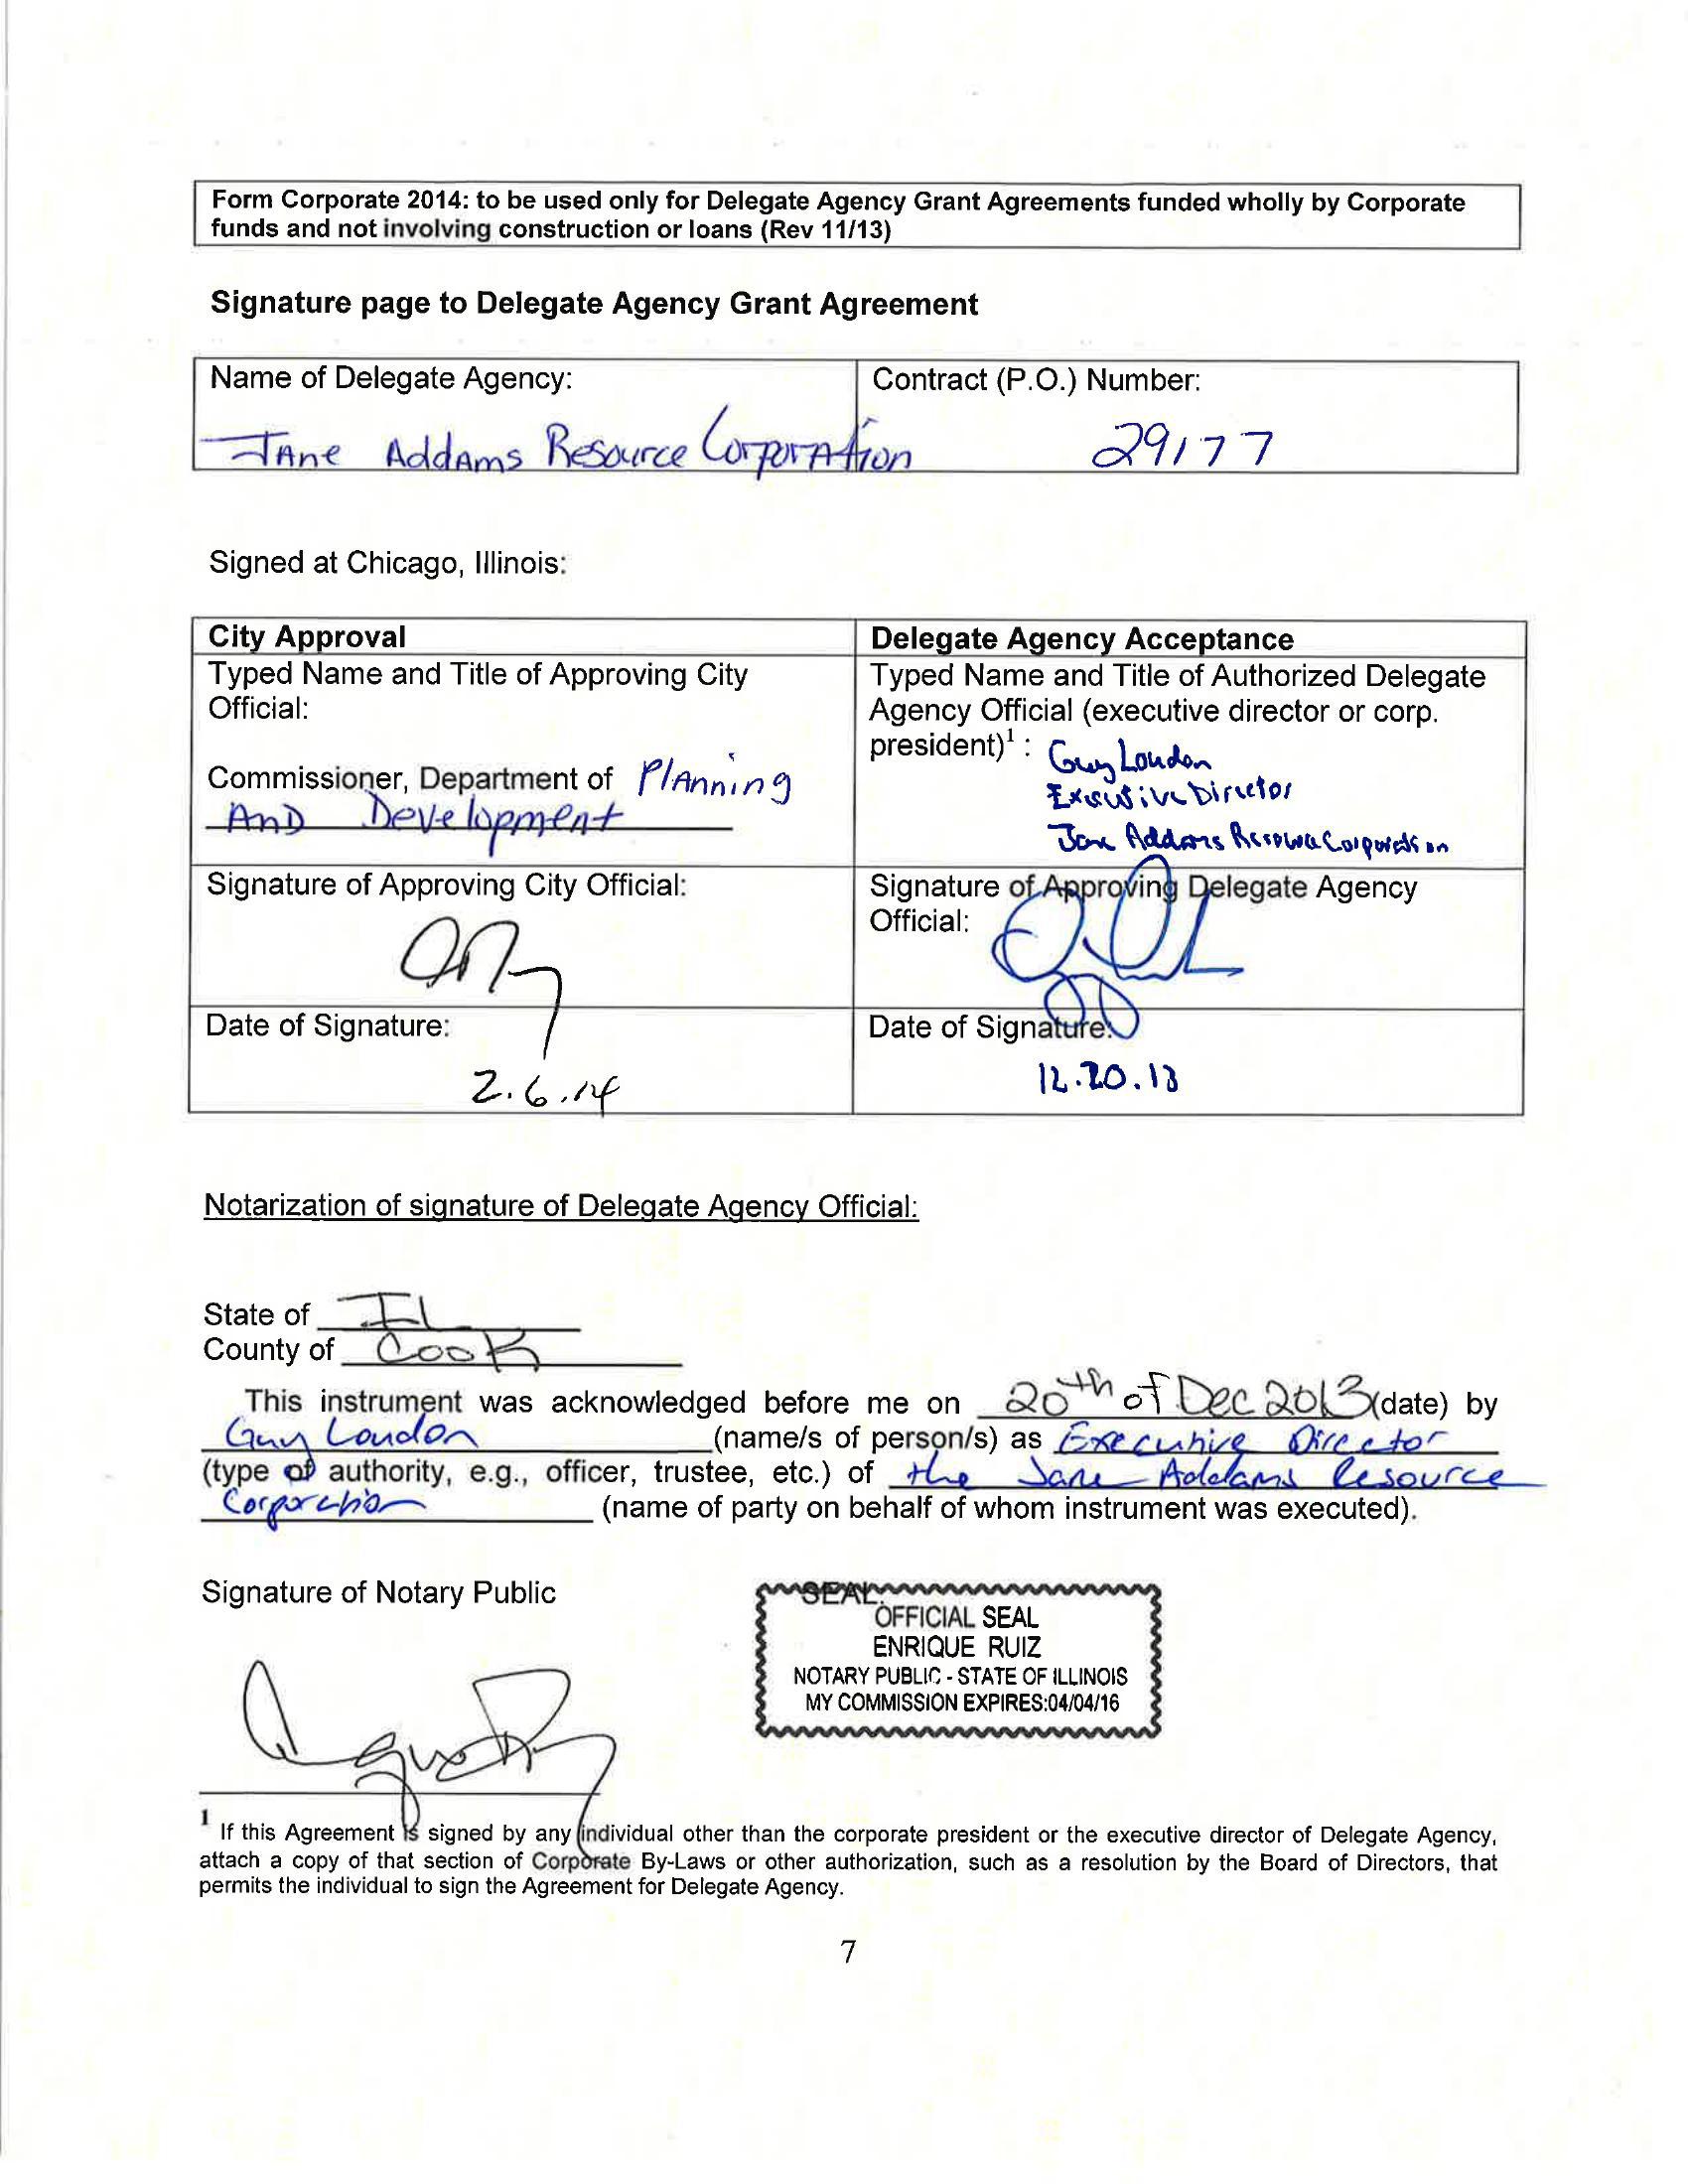 Form Corporate 2014: to be used only for Delegate Agency Grant Agreements funded wholly by Corporate
funds and not involving construction or loans (Rev 11/13)
Signature page to Delegate Agency Grant Agreement
Name of Delegate Agency:
Jane Addams Resource Corporation
Contract (P.O.) Number:
29177
Signed at Chicago, Illinois:
City Approval
Typed Name and Title of Approving City
Official:
Commissioner, Department of Planning
And Development
Delegate Agency Acceptance
Typed Name and Title of Authorized Delegate
Agency Official (executive director or corp.
president)¹ : Guy Loudon
Executive Director
Jane Addams Resource Corporation
Signature of Approving City Official:
Signature of Approving Delegate Agency
Official:
Date of Signature:
2.6.14
Date of Signature:
12.20.13
Notarization of signature of Delegate Agency Official:
State of IL
County of Cook
This instrument was acknowledged before me on 20th of Dec 2013 (date) by
Guy Loudon (name/s of person/s) as Executive Director
(type of authority, e.g., officer, trustee, etc.) of the Jane Addams Resource
Corporation (name of party on behalf of whom instrument was executed).
Signature of Notary Public
SEAL:
OFFICIAL SEAL
ENRIQUE RUIZ
NOTARY PUBLIC - STATE OF ILLINOIS
MY COMMISSION EXPIRES:04/04/16
¹ If this Agreement is signed by any individual other than the corporate president or the executive director of Delegate Agency,
attach a copy of that section of Corporate By-Laws or other authorization, such as a resolution by the Board of Directors, that
permits the individual to sign the Agreement for Delegate Agency.
7